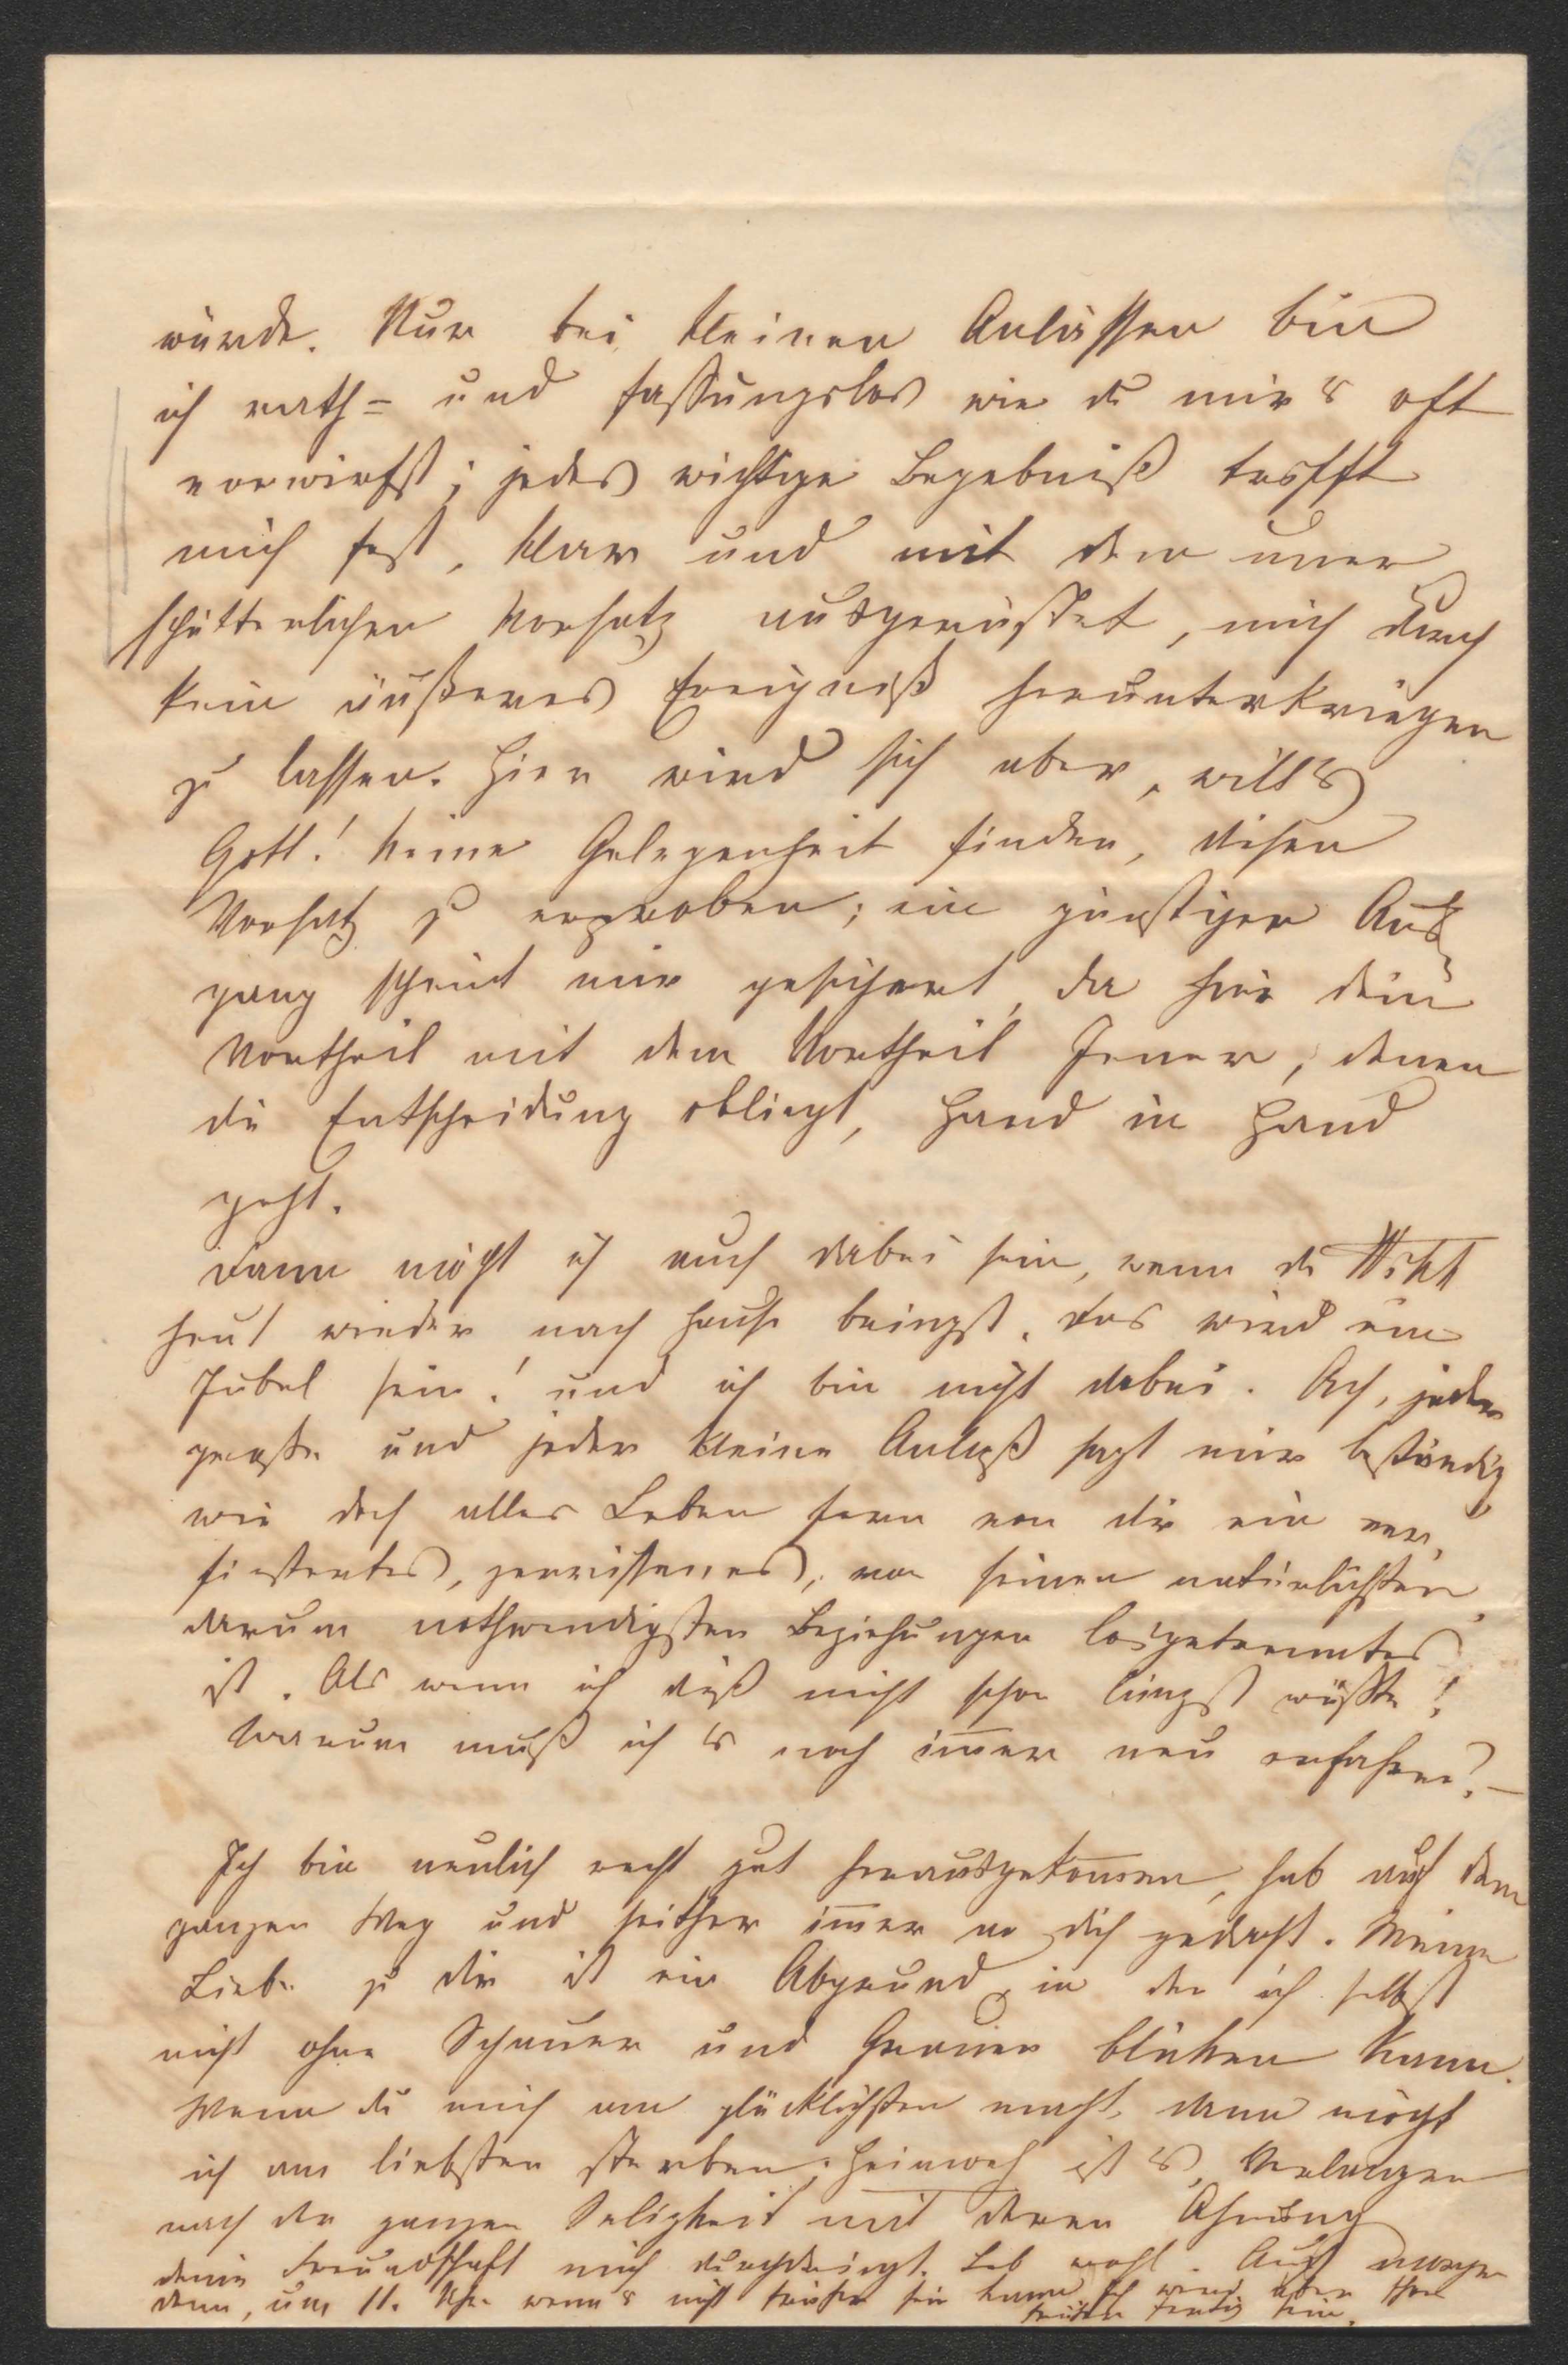 würde. Nur bei kleinen Anlässen bin
ich rath= und fassungslos wie du mir's oft
vorwirfst; jedes wichtige Begebniß trifft
mich fest, klar und mit dem uner
schütterlichen Vorsatz ausgerüstet, mich durch
kein äußeres Ereigniß herunterkriegen
zu lassen. Hier wird sich aber, will's
Gott! keine Gelegenheit finden, diesen
Vorsatz zu erproben; ein günstiger Aus
gang scheint mir gesichert, da hier dein
Vortheil mit dem Vortheil Jener, denen
die Entscheidung obliegt, Hand in Hand
geht.
Dann möcht ich auch dabei sein, wenn du
heut wieder nach Hause bringst. das wird ein
Jubel sein! und ich bin nicht dabei. Ach, jeder
große und jeder kleine Anlaß sagt mir beständig
wie doch alles Leben fern von dir ein ver
finstertes, zerrissenes, von seinen natürlichsten
darum nothwendigsten Beziehungen losgetrenntes
ist. Als wenn ich dieß nicht schon längst wüßte!
Warum muß ich es noch im̅er neu erfahren? –
Ich bin neulich recht gut herausgekom̅en, hab auf dem
ganzen Weg und seither im̅er an dich gedacht. Meine
Liebe zu dir ist ein Abgrund in den ich selbst
nicht ohne Schauer und Grauen blicken kann.
Wenn du mich am glücklichsten machst, dann möcht
ich am liebsten sterben; Heimweh ist es, Verlangen
nach der ganzen Seligkeit mit deren Ahnung
deine Freundschaft mich durchdringt. Leb wohl. Auf morgen
denn, um 11. Uhr wenn's nicht früher sein kann ich werd aber schon
früher fertig sein.